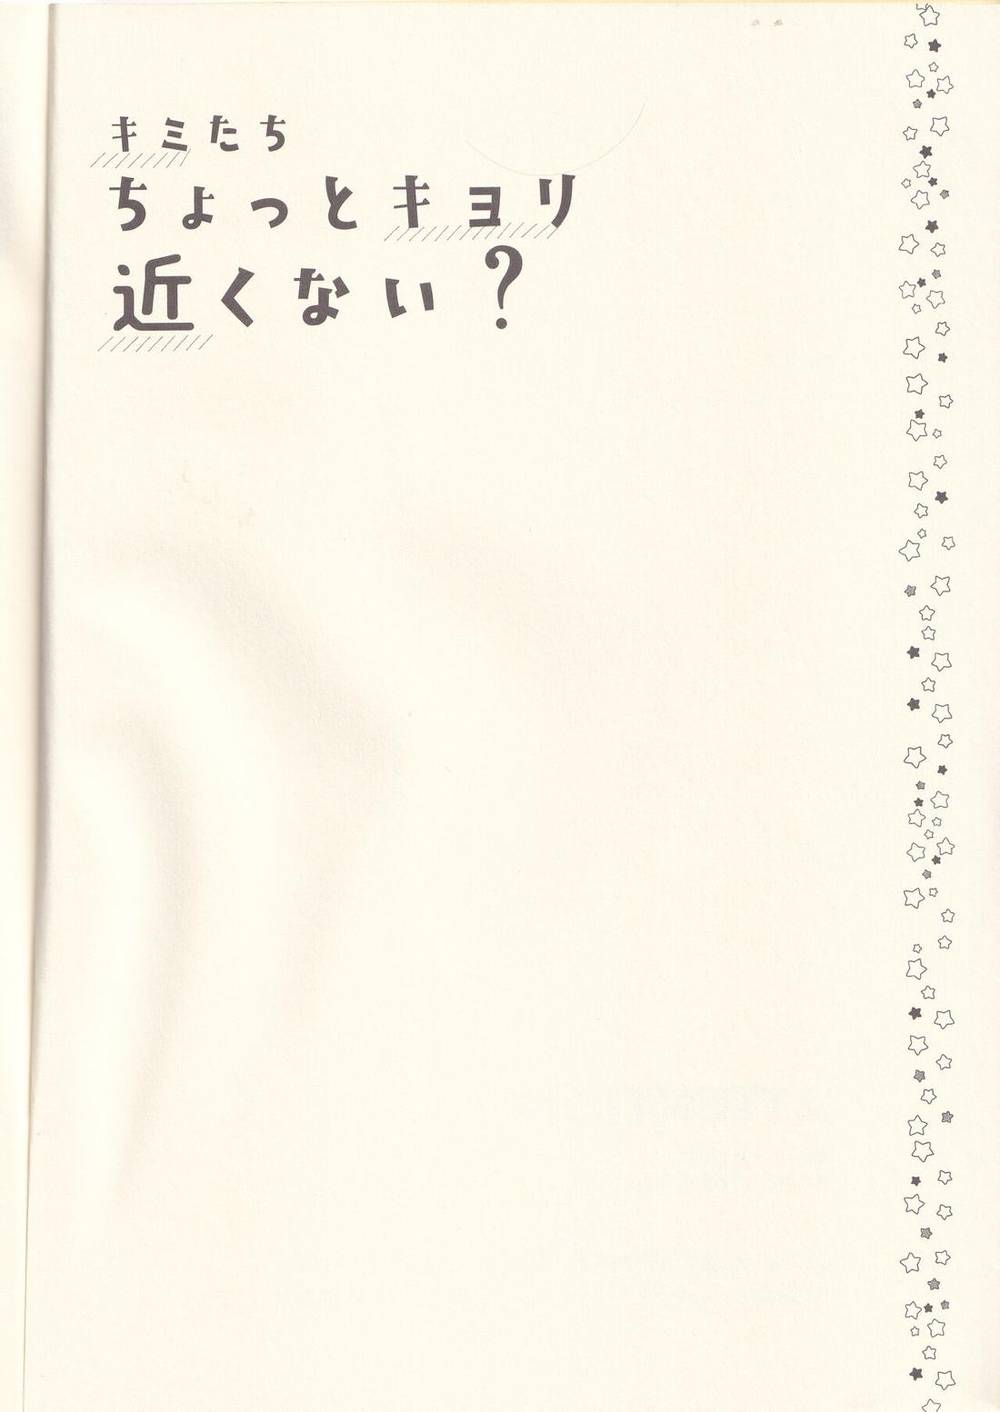 キミたち
ちょっとキョリ
近くない?